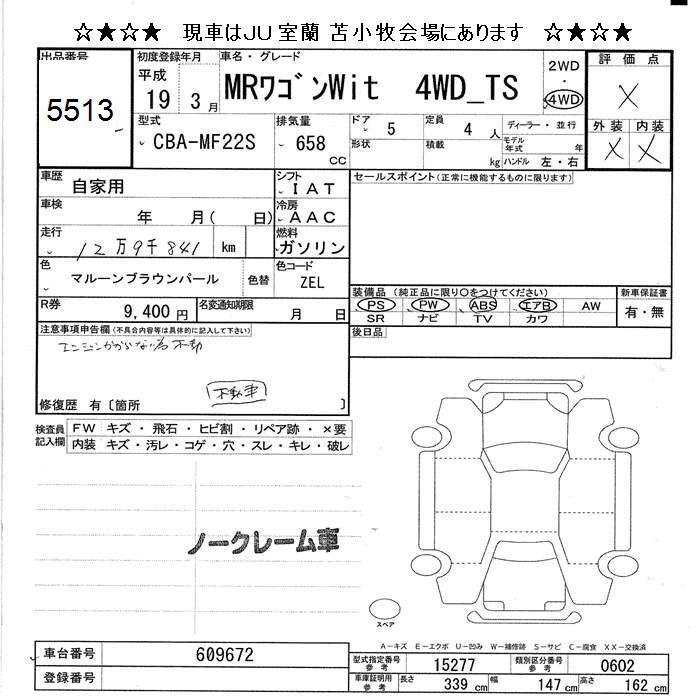 ☆★☆★ 現車はJU室蘭 苫小牧会場にあります ☆★☆★
出品番号
5513
初度登録年月
平成
19 3月
車名・グレード
MRワゴンWit 4WD_TS
2WD
・
4WD
評価点
X
外装 内装
X X
型式
CBA-MF22S
排気量
658
CC
ドア
5
定員
4 人
形状
積載
kg
ディーラー・並行
モデル年式 年
ハンドル 左・右
車歴
自家用
シフト
IAT
車検
年 月( 日)
冷房
AAC
走行
12万9千841 km
燃料
ガソリン
色
マルーンブラウンパール
色替
色コード
ZEL
R券
9,400 円
名変通知期限
月 日
セールスポイント(正常に機能するものに限ります)
装備品 (純正品に限り○をつけてください)
PS PW ABS エアB AW
SR ナビ TV カワ
新車保証書
有・無
後日品
注意事項申告欄(不具合内容等は具体的に記入して下さい)
エンジンかからない為 不動
不動車
修復歴 有〔箇所 〕
検査員記入欄
FW キズ・飛石・ヒビ割・リペア跡・×要
内装 キズ・汚レ・コゲ・穴・スレ・キレ・破レ
ノークレーム車
スペア
A-キズ E-エクボ U-凹み W-補修跡 S-サビ C-腐食 XX-交換済
車台番号
609672
登録番号
型式指定番号
参考
15277
類別区分番号
参考
0602
車庫証明用
参考
長さ
339 cm
幅
147 cm
高さ
162 cm